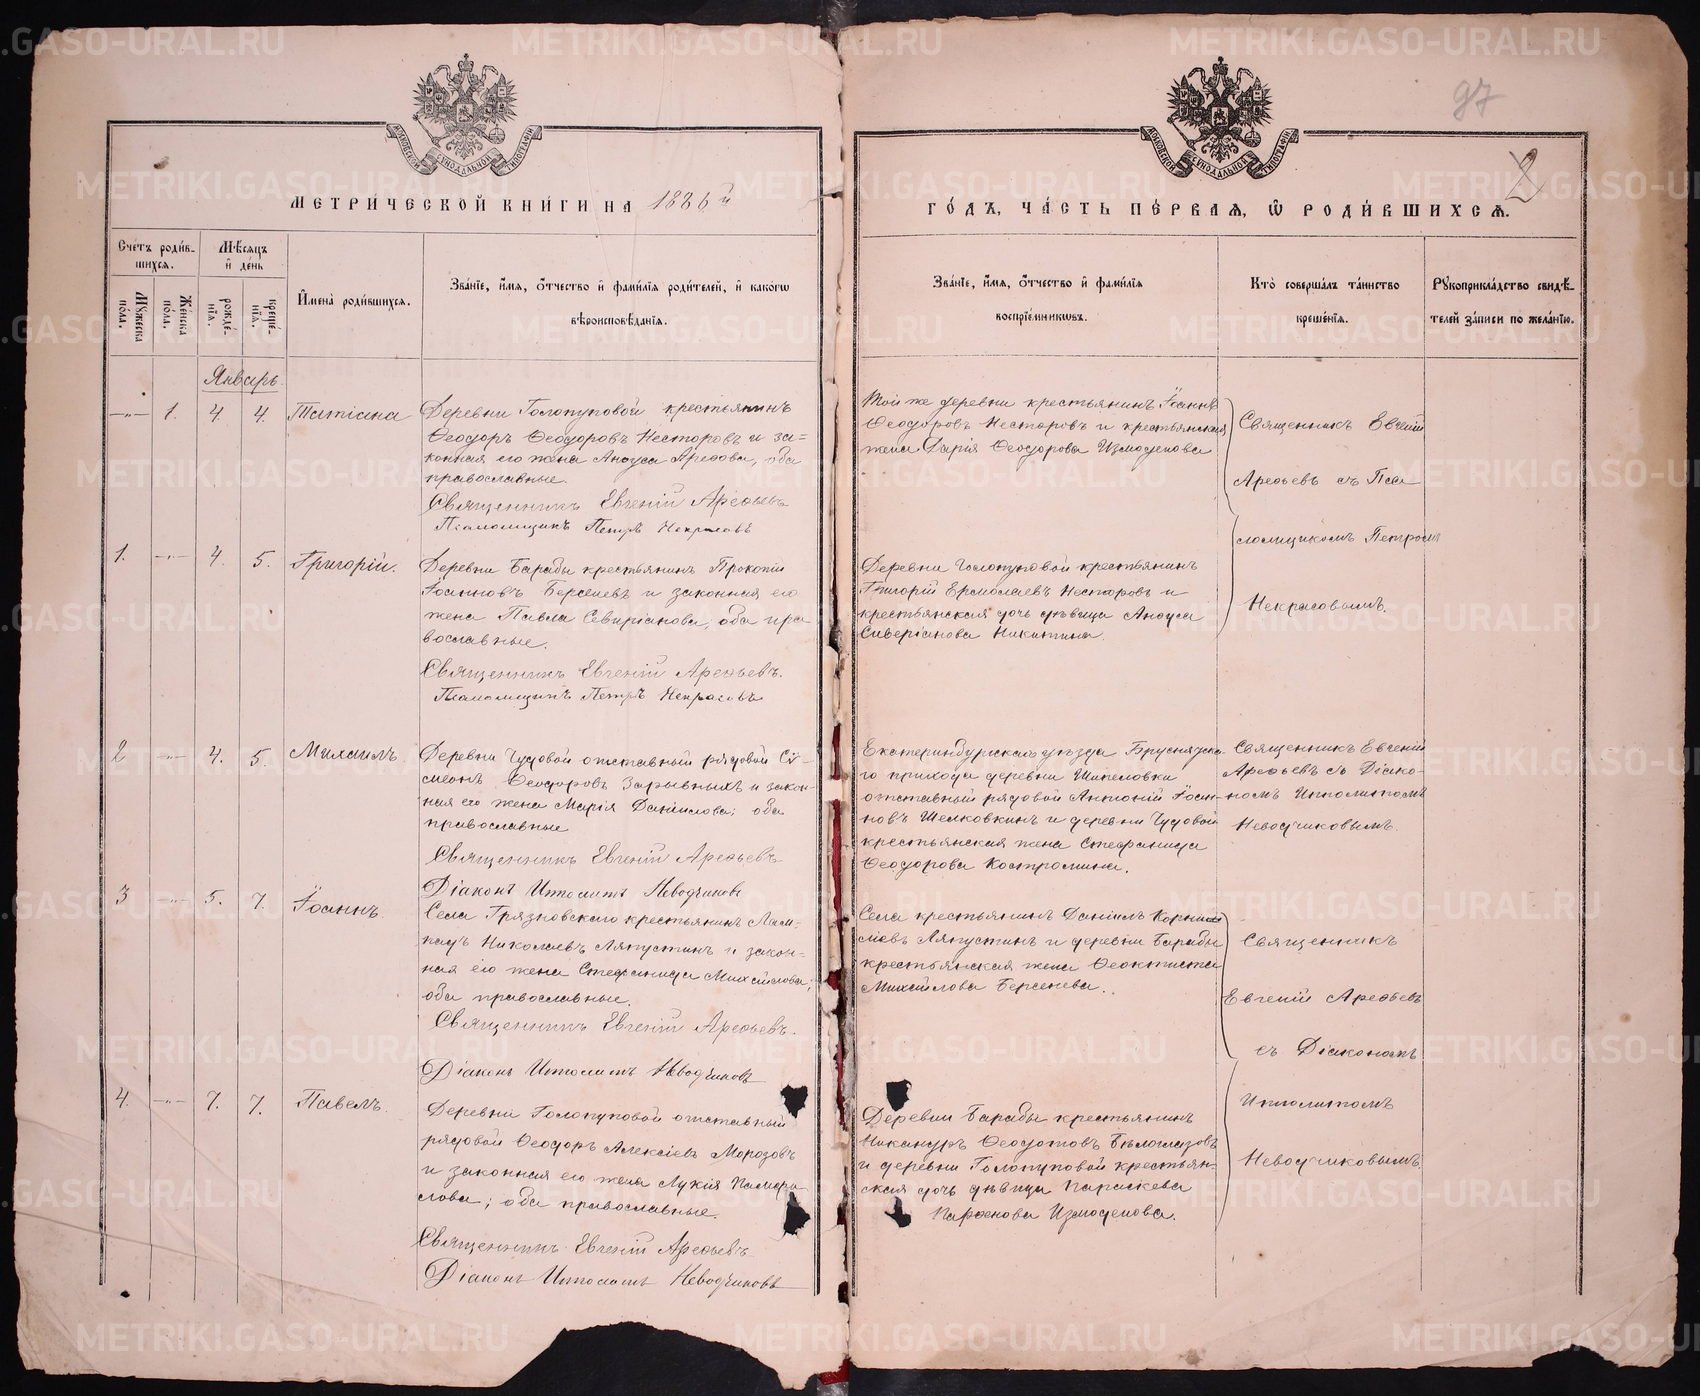 97
2
МОСКОВСКОЙ СѴНОДАЛЬНОЙ ТИПОГРАФІИ
МОСКОВСКОЙ СѴНОДАЛЬНОЙ ТИПОГРАФІИ
МЕТРИ́ЧЕСКОЙ КНИ́ГИ НА 1886й
ГО́ДЪ, ЧА́СТЬ ПЕ́РВАЯ, Ѡ РОДИ́ВШИХСЯ.
Сче́тъ роди́в-
шихся.
Мѣ́сяцъ
и҆ де́нь
Мꙋ́жеска
по́ла.
Же́нска
по́ла.
рожде́-
нїѧ.
креще́-
нїѧ.
И҆мена̀ роди́вшихся.
Зва́нїе, и҆́мя, ѻ҆́тчество и҆ фами́лїя роди́телей, и҆ како́гѡ
вѣроисповѣ́данїя.
Зва́нїе, и҆́мя, ѻ҆́тчество и҆ фами́лїя
воспрїе́мникѡвъ.
Кто̀ соверша́лъ та́инство
креще́нїя.
Рꙋкоприкла́дство свидѣ́-
телей за́писи по жела́нїю.
Январь.
—„— 1. 4. 4. Татіана
Деревни Голопуповой крестьянинъ
Ѳеодоръ Ѳеодоровъ Несторовъ и за=
конная его жена Анѳуса Ареѳова, оба
православные.
Священникъ Евгеній Ареѳьевъ
Псаломщикъ Петръ Некрасовъ
Той же деревни крестьянинъ Іоаннъ
Ѳеодоровъ Несторовъ и крестьянская
жена Дарія Ѳеодорова Измоденова
Священникъ Евгеній
Ареѳьевъ съ Пса
ломщикомъ Петромъ
Некрасовымъ.
1. —„— 4. 5. Григорій.
Деревни Барабы крестьянинъ Прокопій
Іоанновъ Берсеневъ и законная его
жена Павла Севиріанова, оба пра
вославные.
Священникъ Евгеній Ареѳьевъ.
Псаломщикъ Петръ Некрасовъ
Деревни Голопуповой крестьянинъ
Григорій Ермолаевъ Несторовъ и
крестьянская дочь дѣвица Анѳуса
Сиверіанова Никитина.
2 —„— 4. 5. Михаилъ.
Деревни Чудовой отставный рядовой Сѵ-
меонъ Ѳеодоровъ Зарывныхъ и закон-
ная его жена Марія Даніилова; оба
православные
Священникъ Евгеній Ареѳьевъ
Діаконъ Ипполитъ Неводчиковъ
Екатеринбургскаго уѣзда Брусянска-
го прихода деревни Шипеловки
отставный рядовой Антоній Іоан-
новъ Шелковкинъ и деревни Чудовой
крестьянская жена Стефанида
Ѳеодорова Костромина.
Священникъ Евгеній
Ареѳьевъ съ Діако-
номъ Ипполитомъ
Неводчиковымъ.
3 —„— 5. 7. Іоаннъ.
Села Грязновскаго крестьянинъ Лам-
падъ Николаевъ Ляпустинъ и закон-
ная его жена Стефанида Михайлова;
оба православные.
Священникъ Евгеній Ареѳьевъ.
Діаконъ Ипполитъ Неводчиковъ
Села крестьянинъ Даніилъ Корни
ліевъ Ляпустинъ и деревни Барабы
крестьянская жена Ѳеоктиста
Михайлова Берсенева.
Священникъ
Евгеній Ареѳьевъ
съ Діакономъ
Ипполитомъ
Неводчиковымъ.
4. —„— 7. 7. Павелъ.
Деревни Голопуповой отставный
рядовой Ѳеодоръ Алексіевъ Морозовъ
и законная его жена Лукія
оба православные.
Священникъ Евгеній Ареѳьевъ
Діаконъ Ипполитъ Неводчиковъ
Деревни Барабы крестьянинъ
Никаноръ Ѳеодотовъ Бѣлоглазовъ
и деревни Голопуповой крестьян-
ская дочь дѣвица Параскева
Парѳенова Измоденова.
METRIKI.GASO-URAL.RU